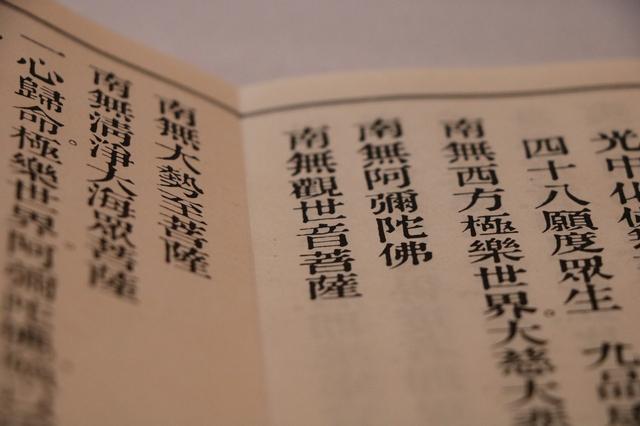 光中化
四十八願度眾生 九品
南無西方極樂世界。大慈大
南無阿彌陀佛
南無觀世音菩薩
南無大勢至菩薩
南無清淨大海眾菩薩
一心歸命。極樂世界阿彌陀佛